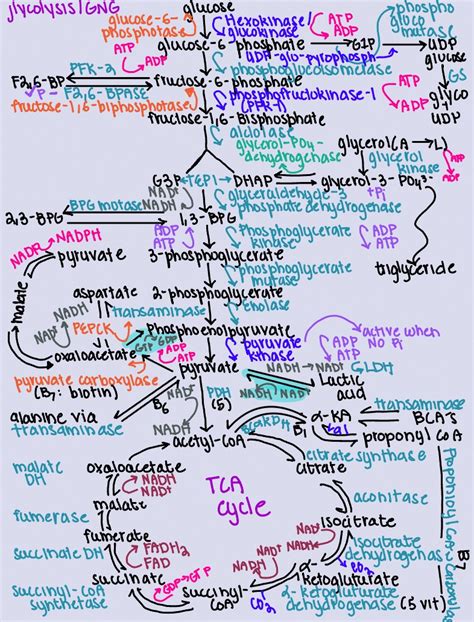 glycolysis/GNG
glucose
glucose-6-
phosphatase
Hexokinase/
glucokinase
ATP
ADP
phospho
gluco
mutase
ATP
ADP
glucose-6-phosphate
G1P
UDP
glucose
GS
glyco
UDP
PFK-2
phosphoglucoisomerase
F2,6-BP
F2,6-BPASE
fructose-6-phosphate
fructose-1,6-biphosphatase
phosphofructokinase-1
(PFK-1)
ATP
ADP
fructose-1,6-Bisphosphate
aldolase
glycerol-PO4-
dehydrogenase
glycerol
glycerol
kinase
ATP
ADP
G3P
DHAP
glycerol-3-PO4
NAD+
NADH
glyceraldehyde-3
phosphate dehydrogenase
+Pi
BPG mutase
2,3-BPG
1,3-BPG
ADP
ATP
phosphoglycerate
kinase
ADP
ATP
NADP
NADPH
pyruvate
3-phosphoglycerate
phosphoglycerate
mutase
triglyceride
malate
aspartate
2-phosphoglycerate
enolase
NADH
NAD+
transaminase
PEPCK
Phosphoenolpyruvate
GTP
GDP
pyruvate
kinase
ADP
ATP
active when
no Pi
oxaloacetate
ADP
ATP
pyruvate
NADH
NAD+
GLDH
pyruvate carboxylase
(B7: biotin)
NADH
NAD+
Lactic
acid
alanine via
transaminase
B6
NAD+
NADH
PDH
(5)
BCαKDH
B1
α-KA
transaminase
BCA's
proponyl CoA
acetyl-CoA
oxaloacetate
citrate
citrate synthase
malate
DH
NADH
NAD+
TCA
cycle
aconitase
malate
fumerase
isocitrate
NAD+
NADH
isocitrate
dehydrogenase
CO2
fumerate
succinate DH
FADH2
FAD
NAD+
NADH
α-
ketogluturate
succinate
GDP
GTP
succinyl-CoA
synthetase
succinyl-
CoA
CO2
α-ketogluturate
dehydrogenase (5 vit)
B7